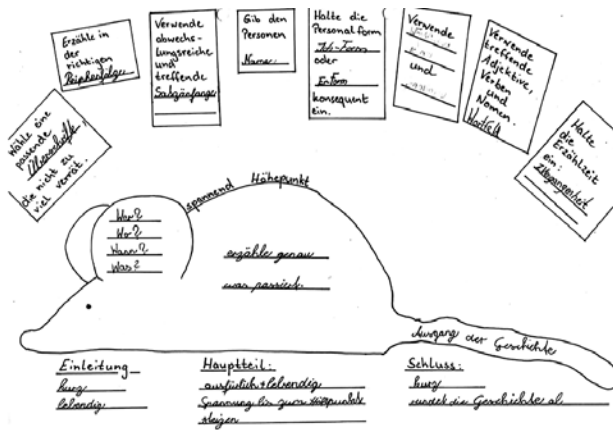 Wähle eine
passende
Überschrift,
die nicht zu
viel verrät.
Erzähle in
der
richtigen
Reihenfolge
Verwende
abwechs-
lungsreiche
und
treffende
Satzanfänge
Gib den
Personen
Namen.
Halte die
Personalform
Ich-Form
oder
Er Form
konsequent
ein.
Verwende
und
Verwende
treffende
Adjektive,
Verben
und
Nomen.
Halte
die
Erzählzeit
ein:
Vergangenheit
Wer?
Wo?
Wann?
Was?
spannend
Höhepunkt
erzähle genau
was passiert.
Ausgang der Geschichte
Einleitung
kurz
lebendig
Hauptteil:
ausfürlich + lebendig
Spannung bis zum Höhepunkt
steigen
Schluss:
kurz
rundet die Geschichte ab.